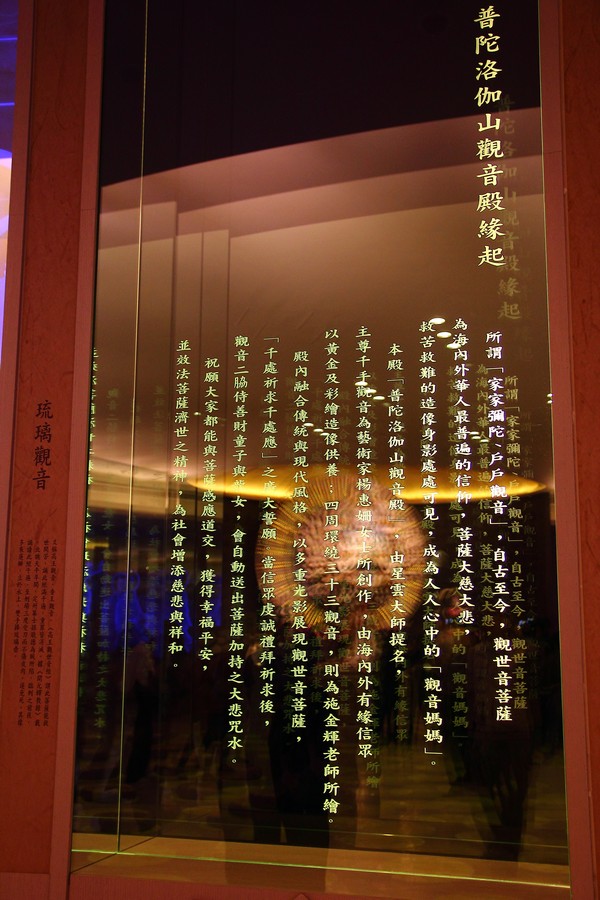 普陀洛伽山觀音殿緣起
所謂「家家彌陀、戶戶觀音」，自古至今，觀世音菩薩
為海內外華人最普遍的信仰，菩薩大慈大悲，
救苦救難的造像身影處處可見，成為人人心中的「觀音媽媽」。
本殿「普陀洛伽山觀音殿」，由星雲大師提名，
主尊千手觀音為藝術家楊惠姍女士所創作，由海內外有緣信眾
以黃金及彩繪造像供養；四周環繞三十三觀音，則為施金輝老師所繪。
殿內融合傳統與現代風格，以多重光影展現觀世音菩薩，
「千處祈求千處應」之廣大誓願。當信眾虔誠禮拜祈求後，
觀音二脇侍善財童子與龍女，會自動送出菩薩加持之大悲咒水。
祝願大家都能與菩薩感應道交，獲得幸福平安，
並效法菩薩濟世之精神，為社會增添慈悲與祥和。
琉璃觀音